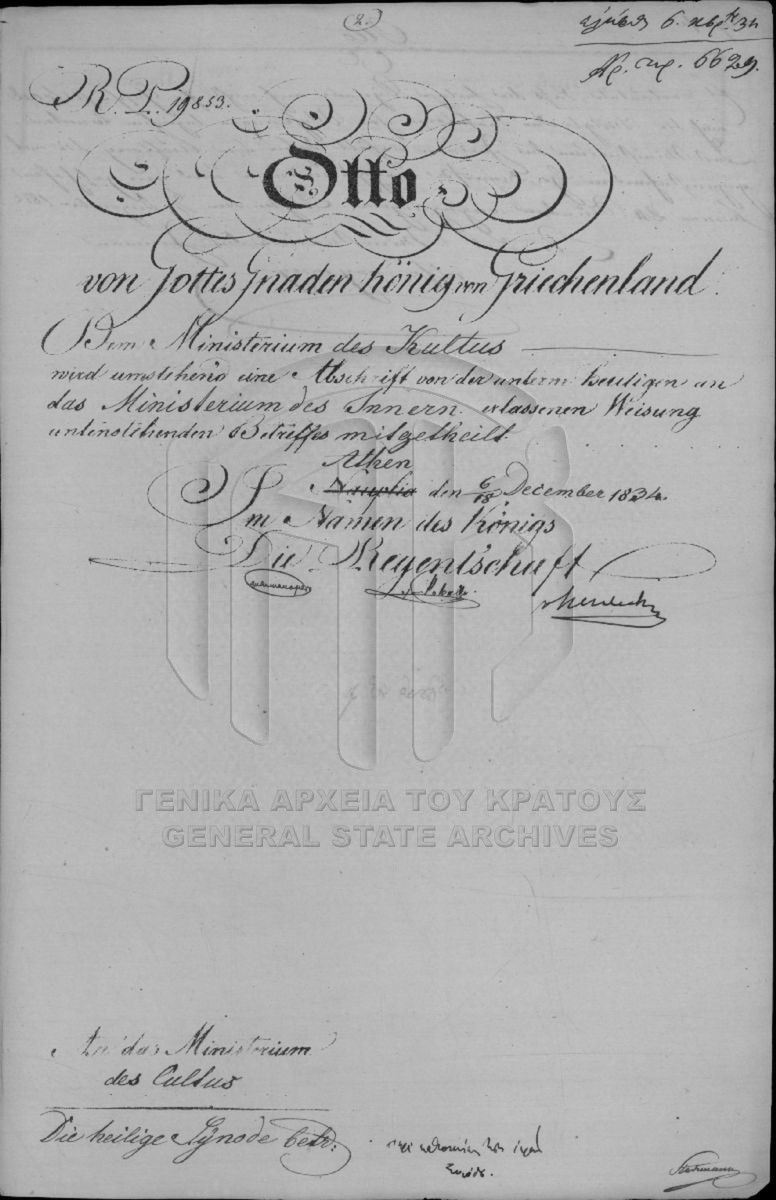 2.
6.
Αρ. πρ. 6629.
R. P. 19853.
Otto
von Gottes Gnaden König von Griechenland.
Dem Ministerium des Kultus
wird umstehend eine Abschrift von der unterm Heutigen an
das Ministerium des Innern erlassenen Weisung
untenstehenden Betreffes mitgetheilt.
Athen
Nauplia den 6/18 December 1834.
Im Namen des Königs
Die Regentschaft
ΓΕΝΙΚΑ ΑΡΧΕΙΑ ΤΟΥ ΚΡΑΤΟΥΣ
GENERAL STATE ARCHIVES
An das Ministerium
des Cultus
Die heilige Synode betr: